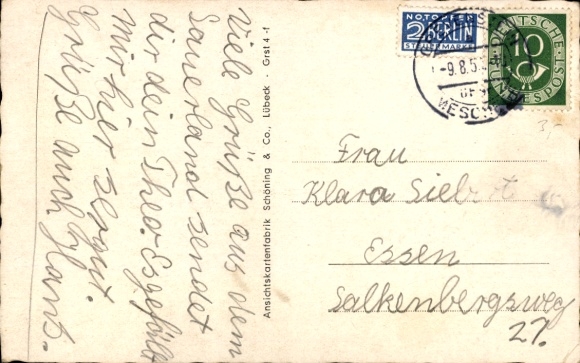 Viele Grüße aus dem
Sauerland sendet
dir dein Theo. Es gefällt
mir hier
Grüße auch Hans.
Ansichtskartenfabrik Schöning & Co., Lübeck · Grst 4-f
NOTOPFER
2 BERLIN
STEUERMARKE
DEUTSCHE
BUNDESPOST
-9.8.5
Frau
Klara
Essen
Salkenbergsweg
27.